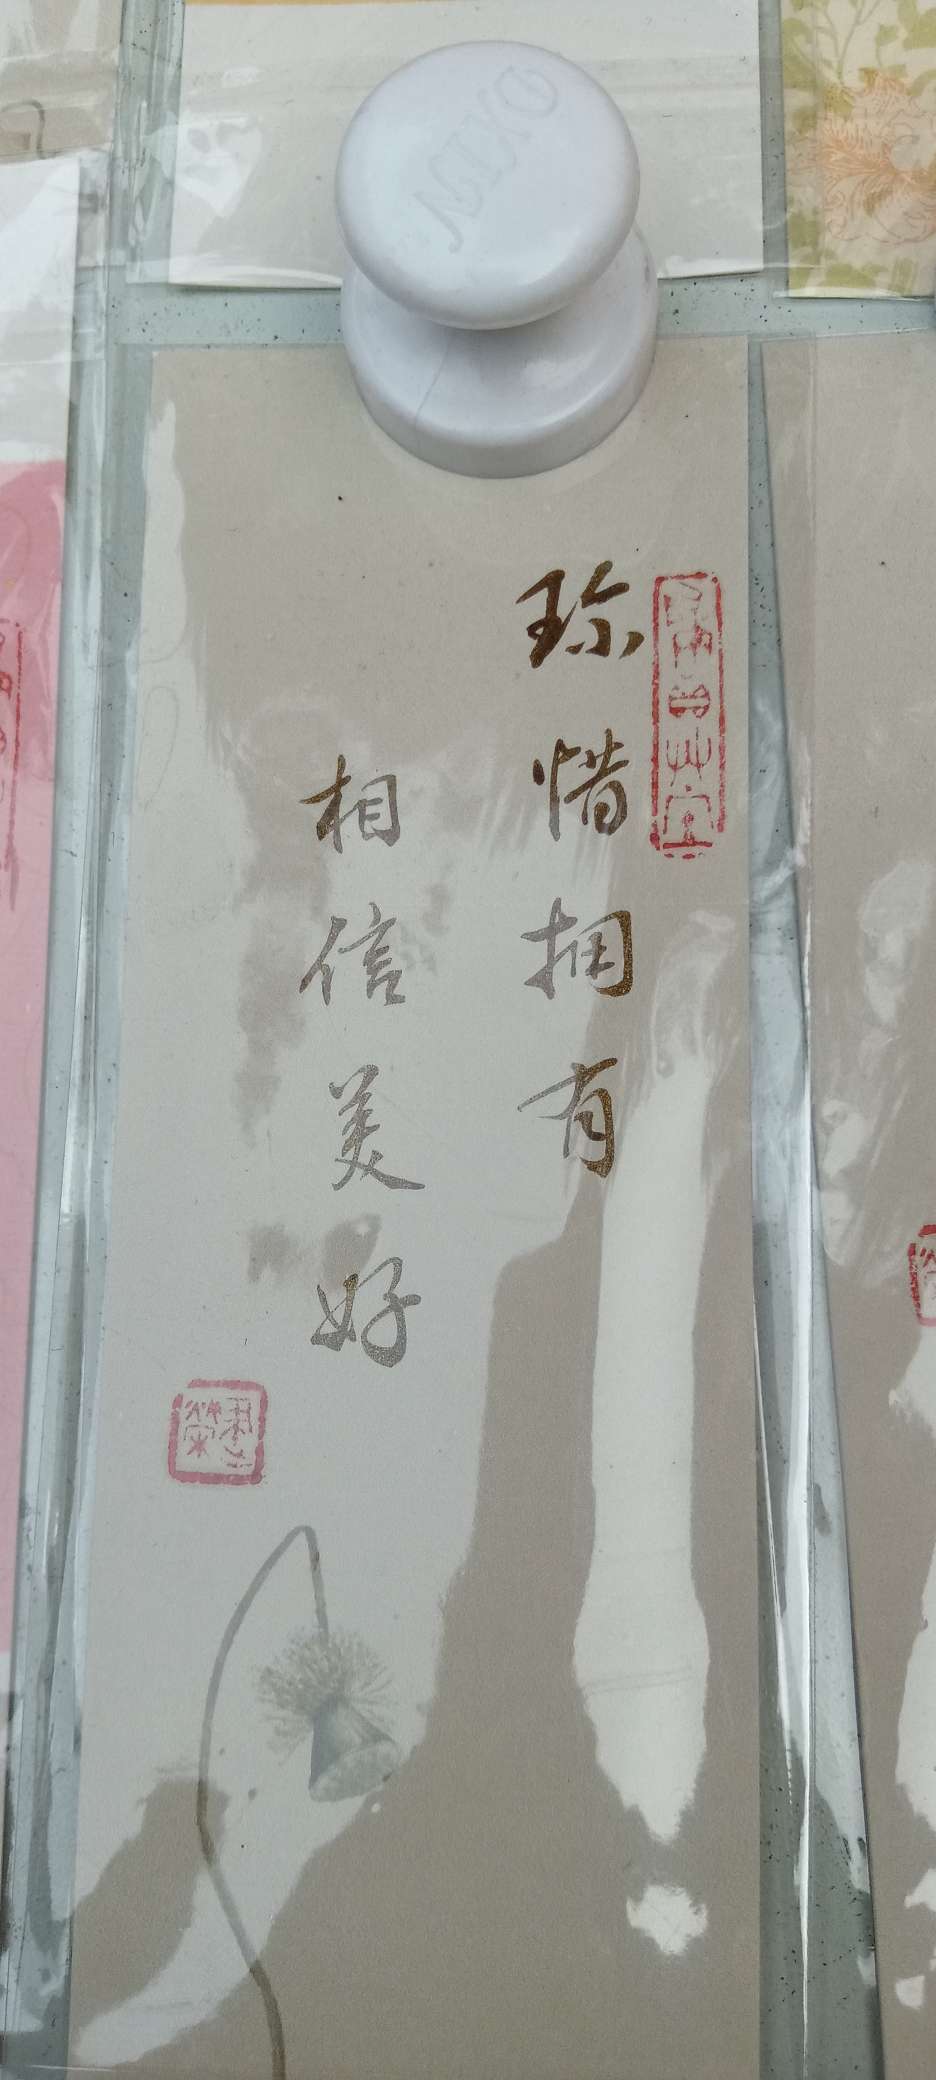 MIXO
珍惜拥有
相信美好